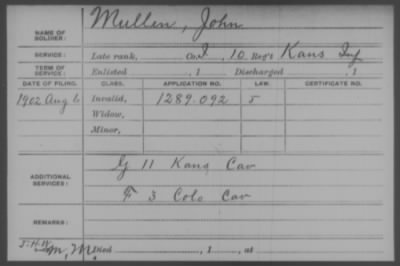 NAME OF SOLDIER: Mullen, John
SERVICE: Late rank, Co. I, 10 Reg't Kans Inf
TERM OF SERVICE: Enlisted , 1 Discharged , 1
DATE OF FILING. CLASS. APPLICATION NO. LAW. CERTIFICATE NO.
1902 Aug 6 Invalid, 1289.092 5
Widow,
Minor,
ADDITIONAL SERVICES: G 11 Kans Cav
F 3 Colo Cav
REMARKS:
Died , 1 , at